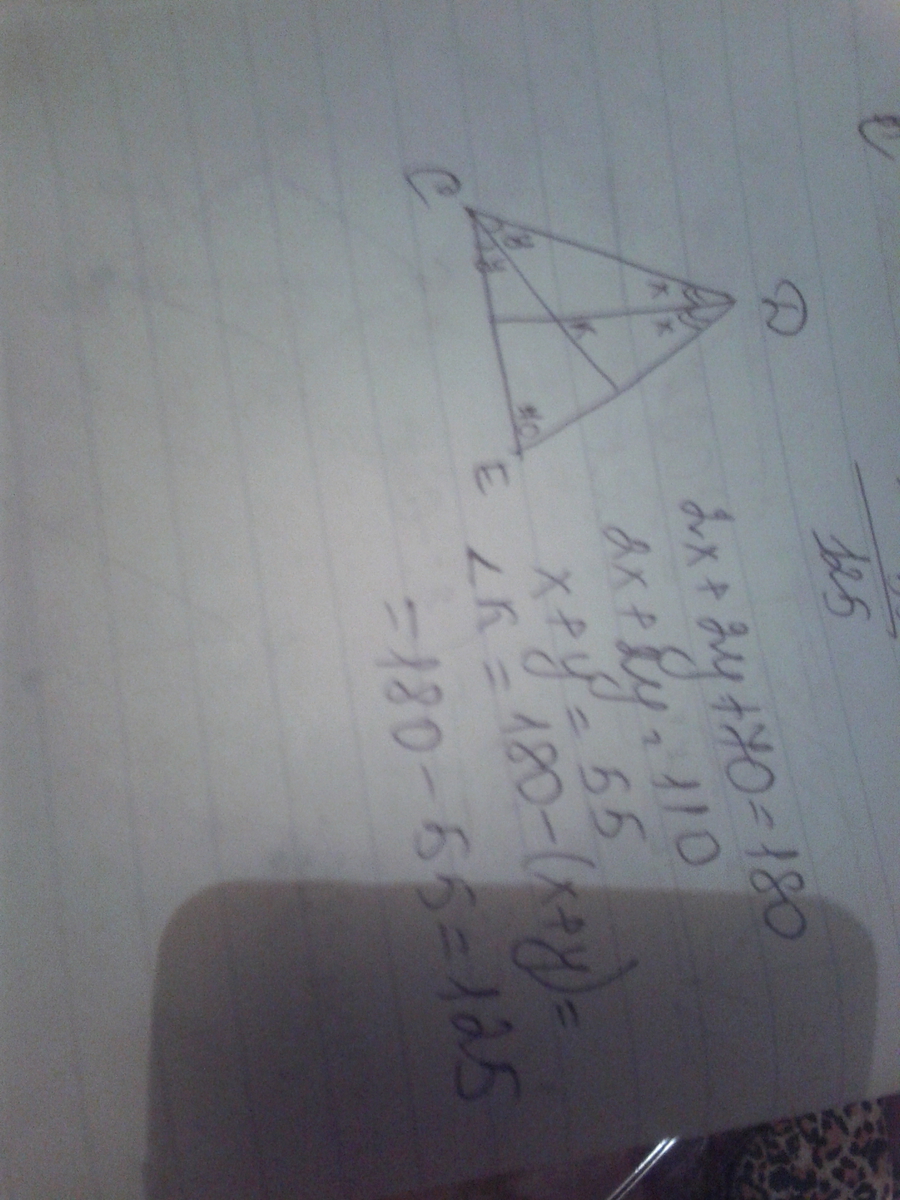 125
D
x x
y
y
K
70
C
E
2x + 2y + 70 = 180
2x + 2y = 110
x + y = 55
∠K = 180 - (x+y) =
= 180 - 55 = 125